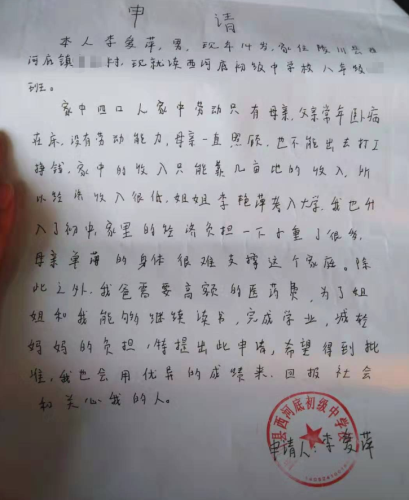 申 请
本人李爱萍,男,现年14岁,家住陵川县西
河底镇 村,现就读西河底初级中学校八年级
班。
家中四口人家中劳动只有母亲,父亲常年卧病
在床,没有劳动能力,母亲一直照顾,也不能出去打工
挣钱,家中的收入只能靠几亩地的收入,所
以经济收入很低,姐姐李艳萍考入大学,我也升
入了初中,家里的经济负担一下子重了很多,
母亲单薄的身体很难支撑这个家庭。除
此之外,我爸需要高额的医药费,为了姐
姐和我能够继续读书,完成学业,减轻
妈妈的负担,特提出此申请,希望得到批
准,我也会用优异的成绩来,回报社会
和关心我的人。
县西河底初级中学
申请人:李爱萍